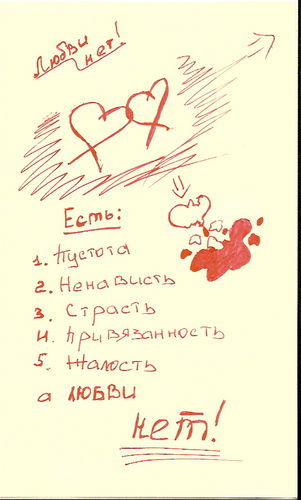 Любви
нет!
Есть:
1. Пустота
2. Ненависть
3. Страсть
4. Привязанность
5. Жалость
а ЛЮБВИ
нет!